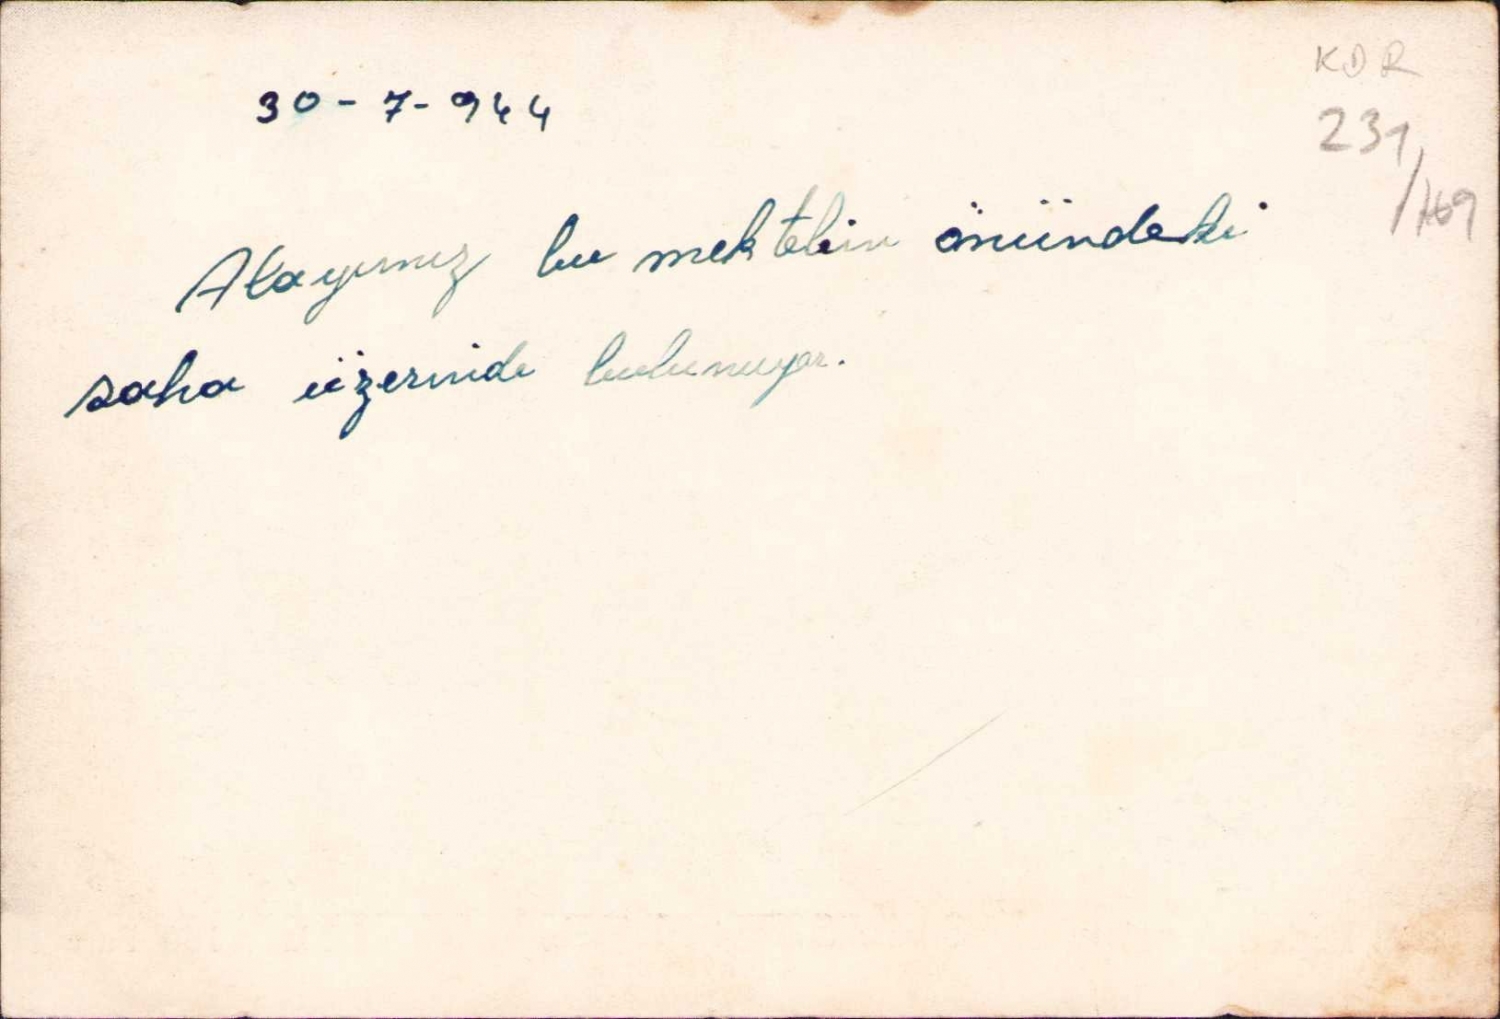 KDR
231/169
30-7-944
Alayımız bu mektebin önündeki
saha üzerinde bulunuyor.